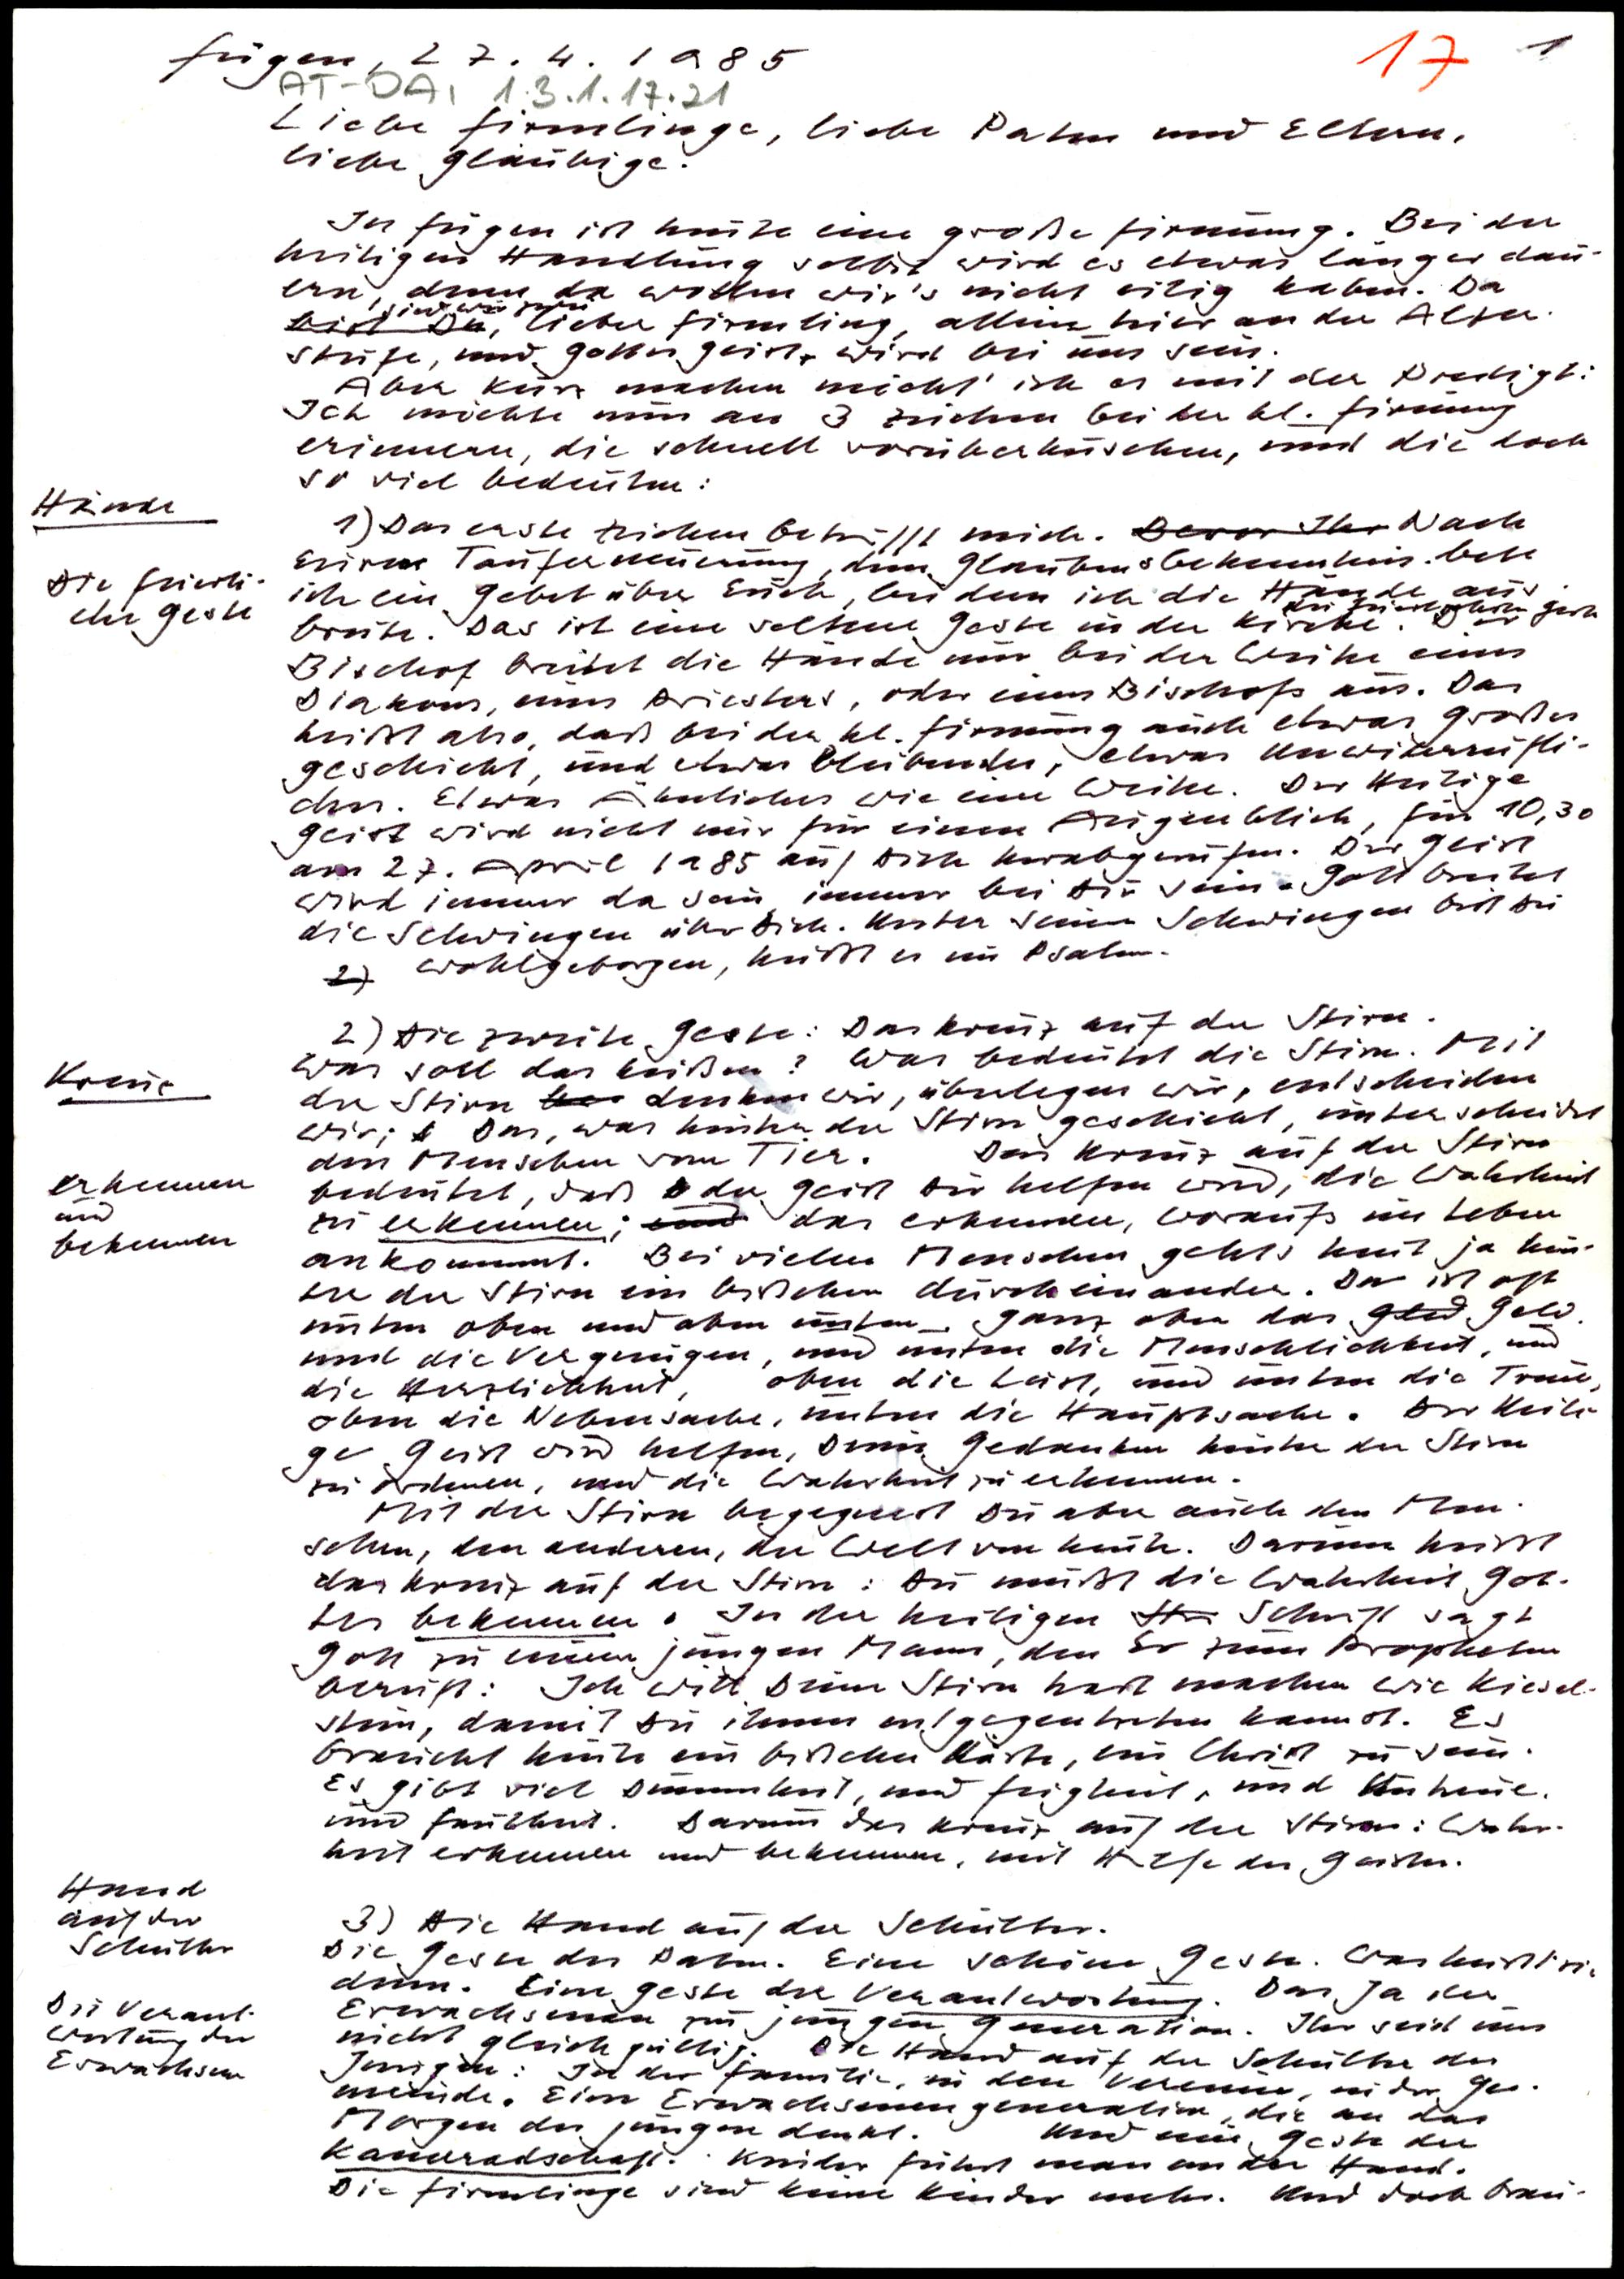 Fügen, 27.4.1985
17 1
AT-DA, 1.3.1.17.21
Liebe Firmlinge, liebe Paten und Eltern,
liebe Gläubige.
In Fügen ist heute eine große Firmung. Bei der
heiligen Handlung selbst wird es etwas länger dau-
ern, denn da wollen wir's nicht eilig haben. Da
bist Du, lieber Firmling, allein hier an der Altar-
stufe, und Gottes Geist wird bei uns sein.
Aber kurz machen möcht' ich es mit der Predigt:
Ich möchte nur an 3 Zeichen bei der hl. Firmung
erinnern, die schnell vorüberhuschen, und die doch
so viel bedeuten:
Hände
1) Das erste Zeichen betrifft mich. Bevor Ihr Nach
Eurer Tauferneuerung, dem Glaubensbekenntnis bete
Die feierli-
che Geste
ich ein Gebet über Euch, bei dem ich die Hände aus-
breite. Das ist eine seltene Geste in der Kirche. Der
Bischof breitet die Hände nur bei der Weihe eines
Diakons, eines Priesters, oder eines Bischofs aus. Das
heißt also, daß bei der hl. Firmung auch etwas Großes
geschieht, und etwas Bleibendes, etwas Unwiderrufli-
ches. Etwas Ähnliches wie eine Weihe. Der Heilige
Geist wird nicht nur für einen Augenblick, für 10,30
am 27. April 1985 auf Dich herabgerufen. Der Geist
wird immer da sein, immer bei Dir sein. Gott breitet
die Schwingen über Dich. Unter seinen Schwingen bist Du
2) wohlgeborgen, heißt es im Psalm.
2) Die zweite Geste: Das Kreuz auf der Stirn.
Kreuz
Was soll das heißen? Was bedeutet die Stirn. Mit
der Stirn denken wir, überlegen wir, entscheiden
wir; Das, was hinter der Stirn geschieht, unterscheidet
den Menschen vom Tier. Das Kreuz auf der Stirn
erkennen
und
bekennen
bedeutet, daß der Geist Dir helfen wird, die Wahrheit
zu erkennen; und das erkennen, worauf's im Leben
ankommt. Bei vielen Menschen geht's heut ja hin-
ter der Stirn ein bißchen durcheinander. Da ist oft
unten oben und oben unten. Ganz oben das Gled Geld
und die Vergnügen, und unten die Menschlichkeit, und
die Herzlichkeit, oben die List, und unten die Treue,
oben die Nebensache, unten die Hauptsache. Der Heili-
ge Geist wird helfen, Deine Gedanken hinter der Stirn
zu ordnen, und die Wahrheit zu erkennen.
Mit der Stirn begegnest Du aber auch den Men-
schen, den anderen, der Welt von heute. Darum heißt
das Kreuz auf der Stirn: Du mußt die Wahrheit Got-
tes bekennen. In der heiligen Schrift sagt
Gott zu einem jungen Mann, den Er zum Propheten
beruft: Ich will Deine Stirn hart machen wie Kiesel-
stein, damit Du ihnen entgegentreten kannst. Es
braucht heute ein bißchen Härte, ein Christ zu sein.
Es gibt viel Dummheit, und Feigheit, und Untreue,
und Faulheit. Darum das Kreuz auf der Stirn: Wahr-
heit erkennen und bekennen, mit Hilfe des Geistes.
Hand
auf der
Schulter
3) Die Hand auf der Schulter.
Die Geste des Paten. Eine schöne Geste. Was heißt sie
denn. Eine Geste der Verantwortung. Das Ja der
Die Verant-
wortung der
Erwachsenen
Erwachsenen zur jungen Generation. Ihr seid uns
nicht gleichgültig. Die Hand auf der Schulter der
Jungen: In der Familie, in den Vereinen, in der Ge-
meinde. Eine Erwachsenengeneration, die an das
Morgen der Jungen denkt. Und eine Geste der
Kameradschaft. Kinder führt man an der Hand.
Die Firmlinge sind keine Kinder mehr. Und doch brau-